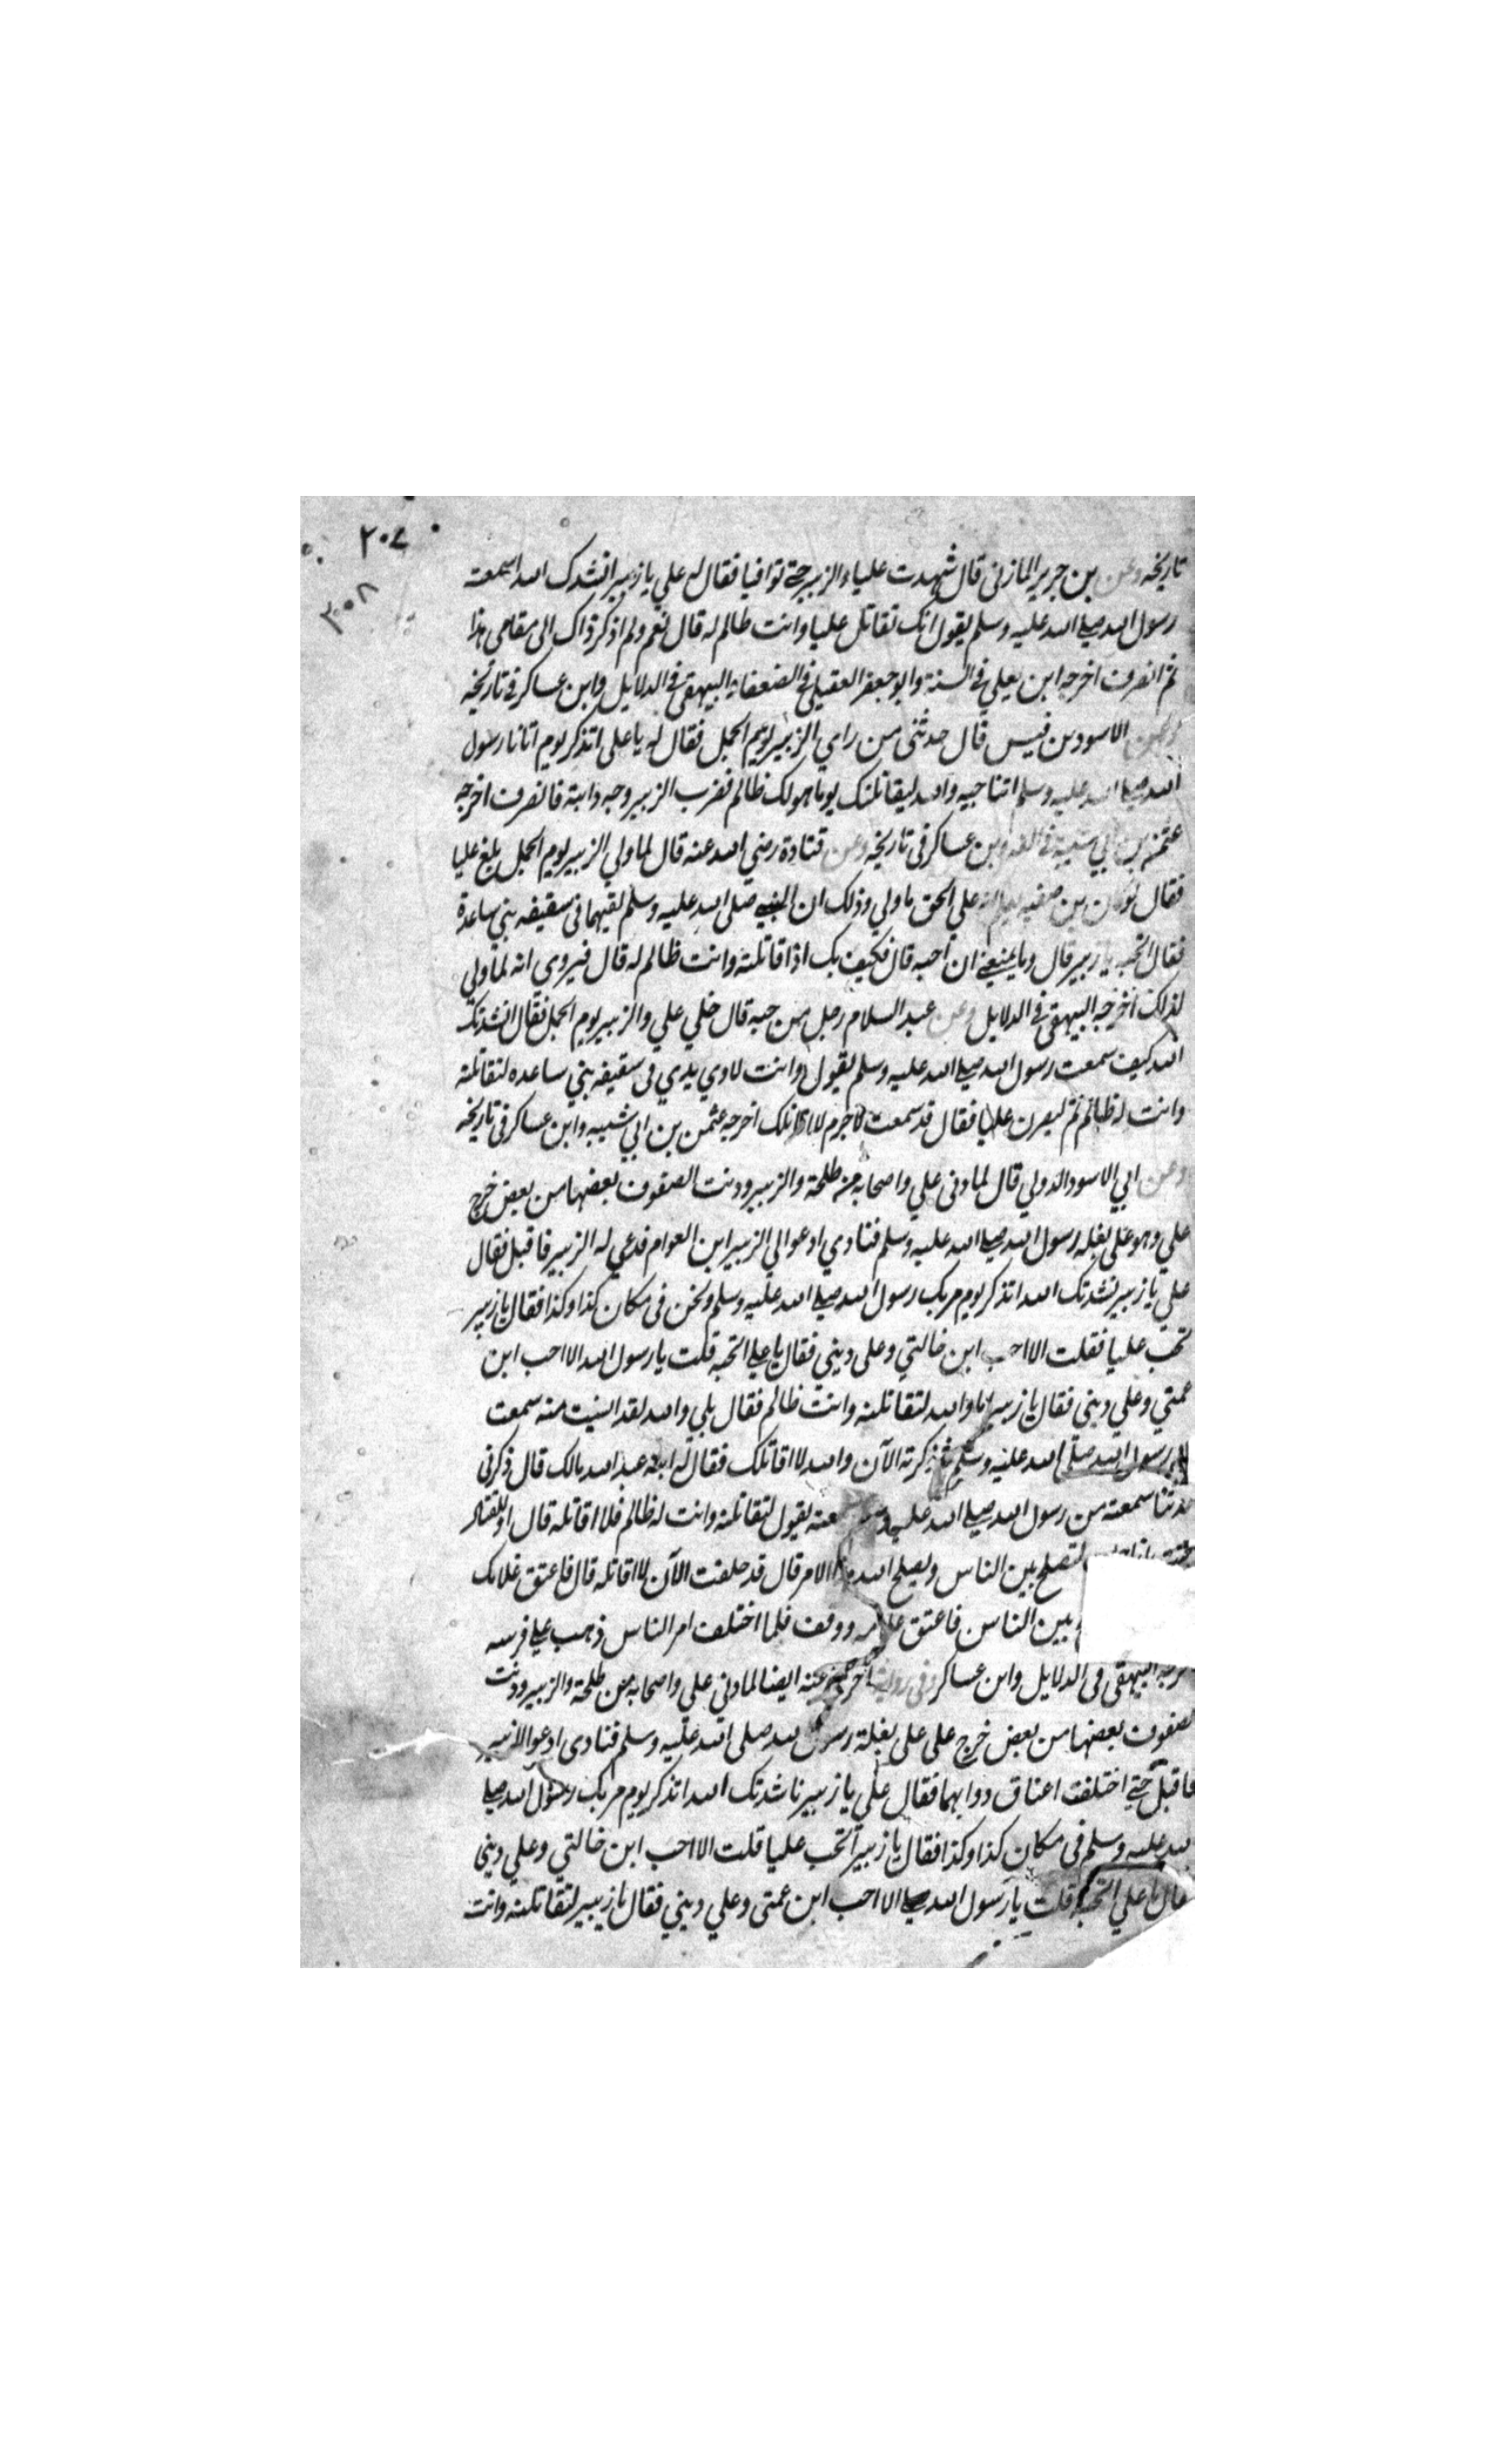 ٢٠٤
٣٠٨
تاريخه وعن بن جرير المازنى قال شهدت عليا والزبير حتى توافيا فقال له علي يا زبير انشدك الله اسمعت
رسول الله صلى الله عليه وسلم يقول انك تقاتل عليا وانت ظالم له قال نعم ولم اذكر ذاك الى مقامى هذا
ثم انصرف اخرجه ابن يعلي في السنة وابو جعفر العقيلي في الضعفاء البيهقى فى الدلايل وابن عساكر فى تاريخه
وعن الاسود بن قيس قال حدثنى من راي الزبير يوم الجمل فقال له يا على اتذكر يوم اتانا رسول
الله صلى الله عليه وسلم اتناجيه والله ليقاتلنك يوما هو لك ظالم فضرب الزبير وجه دابته فانصرف اخرجه
عثمن بن ابي شيبه فى وبن عساكر فى تاريخه وعن قتادة رضي الله عنه قال لما ولي الزبير يوم الجمل بلغ عليا
فقال لو كان بن صفيه يعلم انه علي الحق ما ولي وذلك ان النبي صلى الله عليه وسلم لقيهما فى سقيفه بني ساعدة
فقال اتحبه يا زبير قال وما يمنعني ان احبه قال فكيف بك اذا قاتلته وانت ظالم له قال فيروي انه لما ولي
لذلك اخرجه البيهقى فى الدلايل وعن عبد السلام رجل من حيه قال خلي علي والزبير يوم الجمل فقال انشدتك
الله كيف سمعت رسول الله صلى الله عليه وسلم يقول وانت لاوي يدي فى سقيفه بني ساعده لتقاتلنه
وانت له ظالم ثم لينصرن عليك فقال قد سمعت لا جرم لا اقاتلك اخرجه عثمن بن ابي شيبه وابن عساكر فى تاريخه
وعن ابي الاسود الدولي قال لما دنى علي واصحابه من طلحة والزبير ودنت الصفوف بعضها من بعض خرج
علي وهو على بغله رسول الله صلى الله عليه وسلم فنادي ادعوا لي الزبير ابن العوام فدعي له الزبير فاقبل فقال
علي يا زبير نشدتك الله اتذكر يوم مر بك رسول الله صلى الله عليه وسلم ونحن فى مكان كذا وكذا فقال يا زبير
تحب عليا فقلت الا احب ابن خالتي وعلى ديني فقال يا علي اتحبه قلت يا رسول الله الا احب ابن
عمتي وعلي ديني فقال يا زبير اما والله لتقاتلنه وانت ظالم فقال بلي والله لقد انسيت منه سمعت
رسول الله صلى الله عليه وسلم ثم ذكرته الآن والله لا اقاتلك فقال له ابنه عبد الله مالك قال ذكرنى
حديثا سمعته من رسول الله صلى الله عليه وسلم سمعته يقول لتقاتلنه وانت له ظالم فلا اقاتله قال او للقتال
لتصلح بين الناس ويصلح الله هذا الامر قال قد حلفت الآن لا اقاتله قال فاعتق غلامك
بين الناس فاعتق غلامه ووقف فلما اختلف امر الناس ذهب علي فرسه
البيهقى فى الدلايل وابن عساكر وفى رواية اخرى عنه ايضا لما دني علي واصحابه من طلحة والزبير ودنت
الصفوف بعضها من بعض خرج على على بغلة رسول الله صلى الله عليه وسلم فنادى ادعوا الزبير
فاقبل حتي اختلفت اعناق دوابهما فقال علي يا زبير ناشدتك الله اتذكر يوم مر بك رسول الله صلى
الله عليه وسلم فى مكان كذا وكذا فقال يا زبير اتحب عليا قلت الا احب ابن خالتي وعلي ديني
فقال يا علي اتحبه قلت يا رسول الله صلى الا احب ابن عمتى وعلي ديني فقال يا زبير لتقاتلنه وانت